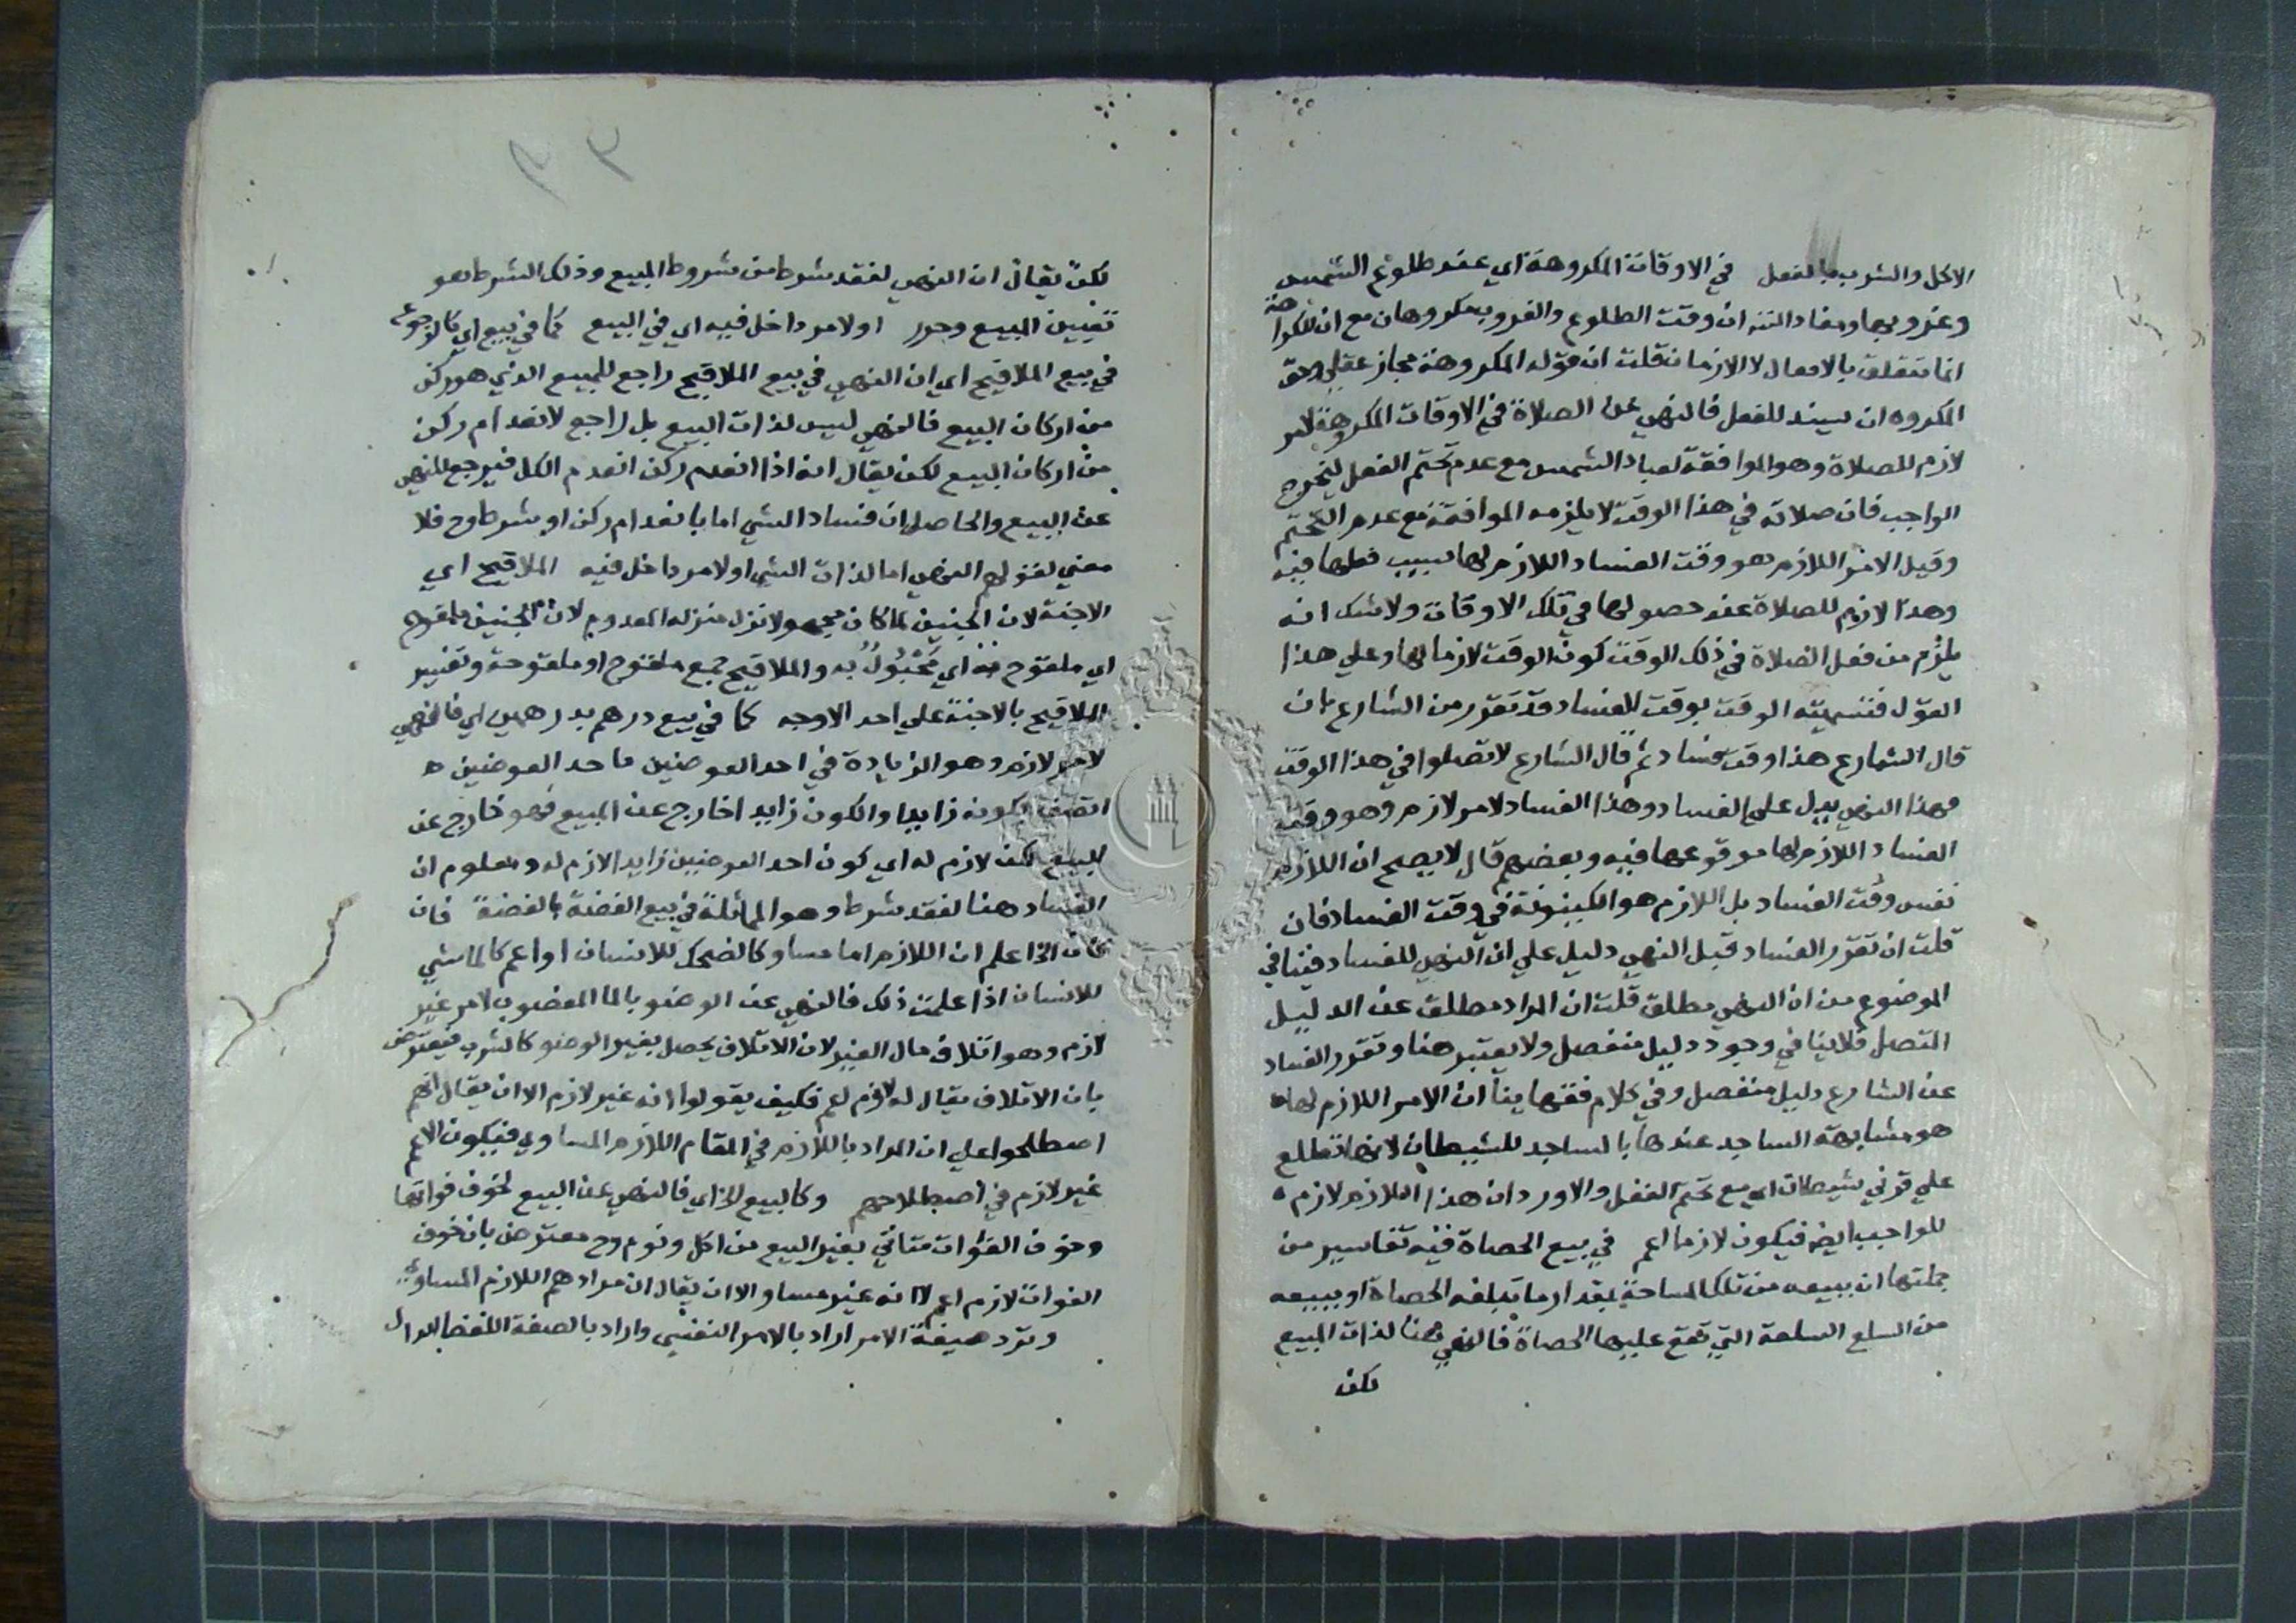 الاكل والشرب بالفعل في الاوقات المكروهة اي عند طلوع الشمس
وغروبها ومفاد المتنه ان وقت الطلوع والغروب مكروهان مع ان الكراهة
انما تتعلق بالافعال لا الازمان قلت ان قوله المكروهة مجاز عقلي وحق
المكروه ان يسند للفعل فالنهي عن الصلاة في الاوقات المكروهة لامر
لازم للصلاة وهو الموافقة لعباد الشمس مع عدم تحتم الفعل ليخرج
الواجب فان صلاته في هذا الوقت لا يلزمه الموافقة مع عدم التحتم
وقيل الامر اللازم هو وقت الفساد اللازم لها بسبب فعلها فيه
وهذا لازم للصلاة عند حصولها في تلك الاوقات ولا شك انه
يلزم من فعل الصلاة في ذلك الوقت كون الوقت لازما لها وعلي هذا
القول فتسميته الوقت بوقت الفساد قد تقرر من الشارع بان
قال الشارع هذا وقت فساد ثم قال الشارع لا تصلوا في هذا الوقت
فهذا النهي يدل علي الفساد وهذا الفساد لامر لازم وهو وقت
الفساد اللازم لها موقوعها فيه وبعضهم قال لا يصح ان اللازم
نفس وقت الفساد بل اللازم هو الكينونة في وقت الفساد فان
قلت ان تقرر الفساد قبل النهي دليل علي ان النهي للفساد فينافي
الموضوع من ان النهي مطلق قلت ان المراد مطلق عن الدليل
المتصل فلا ينافي وجود دليل منفصل ولا يعتبر هنا وتقرر الفساد
عن الشارع دليل منفصل وفي كلام فقهاينا ان الامر اللازم لها
هو مشابهة الساجد عندها بالساجد للشيطان لانها تطلع
علي قرني شيطان اي مع تحتم الفعل والا ورد ان هذا اللازم لازم
للواجب ايضه فيكون لازما اعم في بيع الحصاة فيه تفاسير من
جملتها ان يبيعه من تلك المساحة بمقدار ما تبلغه الحصاة او يبيعه
من السلع السلعة التي تقع عليها الحصاة فالنهي هنا لذات المبيع
لكن
٣٣
لكن يقال ان النهي لفقد شرط من شروط المبيع وذلك الشرط هو
تعيين المبيع وحرر او لامر داخل فيه اي في البيع كما في بيع اي كالرجوع
في بيع الملاقيح اي ان النهي في بيع الملاقيح راجع للمبيع الذي هو ركن
من اركان البيع فالنهي ليس لذات البيع بل راجع لانعدام ركن
من اركان البيع لكن يقال انه اذا انعدم ركن انعدم الكل فيرجع للنهي
عن البيع والحاصل ان فساد الشي اما بانعدام ركن او شرط وح فلا
معني لقولهم النهي اما لذات الشي او لامر داخل فيه الملاقيح اي
الاجنة لان الجنين لما كان مجهولا نزل منزلة المعدوم لان الجنين ملقوح
اي ملقوح به اي مَحْبُولٌ به والملاقيح جمع ملقوح او ملقوحة وتفسير
الملاقيح بالاجنة علي احد الاوجه كما في بيع درهم بدرهمين اي فالنهي
لامر لازم وهو الزيادة في احد العوضين فاحد العوضين ه
اتصف بكونه زايدا والكون زايدا خارج عن المبيع فهو خارج عن
البيع لكن لازم له اي كون احد العوضين زايدا لازم له ومعلوم ان
الفساد هنا لفقد شرط وهو المماثلة في بيع الفضة بالفضة فان
كان الخ اعلم ان اللازم اما مساو كالضحك للانسان او اعم كالماشي
للانسان اذا علمت ذلك فالنهي عن الوضو بالماء المغصوب لامر غير
لازم وهو اتلاف مال الغير لان الاتلاف يحصل بغير الوضو كالشرب فيعترض
بان الاتلاف يقال له لازم اعم فكيف يقولوا انه غير لازم الا ان يقال انهم
اصطلحوا علي ان المراد باللازم في المقام اللازم المساوي فيكون الاعم
غير لازم في اصطلاحهم وكالبيع الخ اي فالنهي عن البيع لخوف فواتها
وخوف الفوات متاتي بغير البيع من اكل ونوم وح معترض بان خوف
الفوات لازم اعم لانه غير مساو الا ان يقال ان مرادهم اللازم المساوي
وترد صيغة الامر اراد بالامر النفسي واراد بالصيغة اللفظ الدال